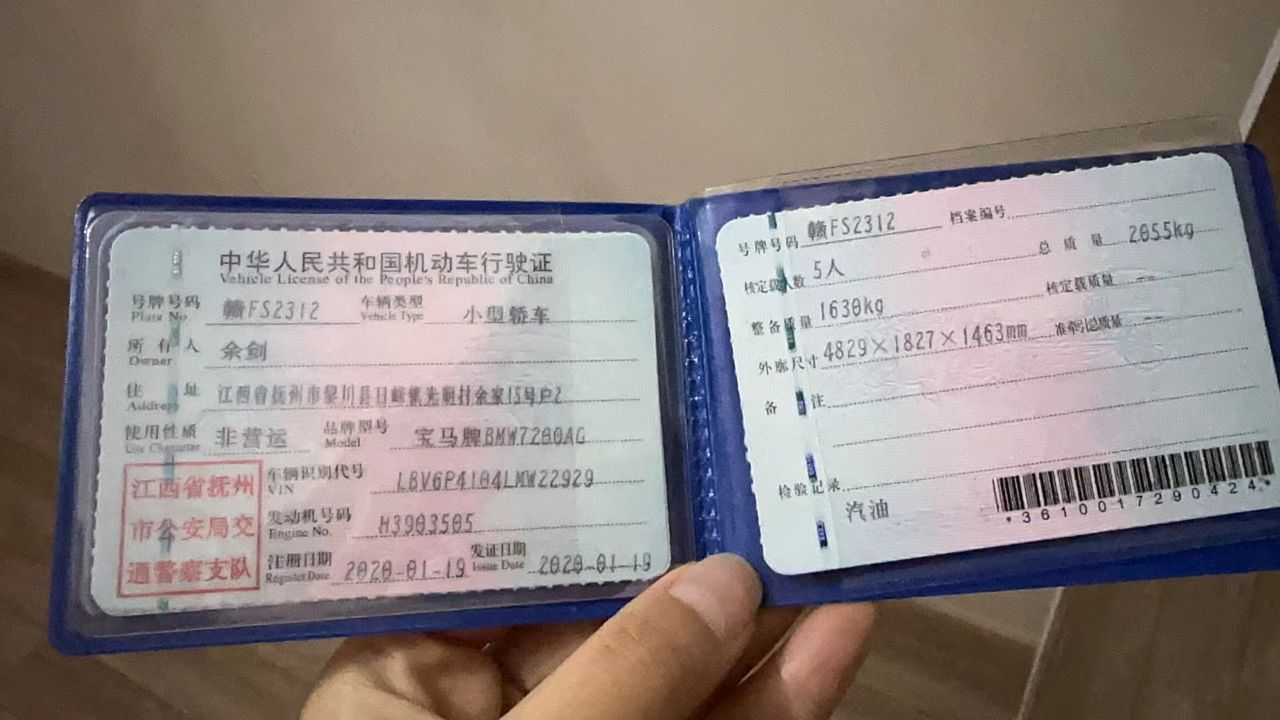 中华人民共和国机动车行驶证
Vehicle License of the People's Republic of China
号牌号码 赣FS2312 车辆类型 小型轿车
Plate No. Vehicle Type
所有人 余剑
Owner
住址 江西省抚州市黎川县日峰镇光明村余家15号户2
Address
使用性质 非营运 品牌型号 宝马牌BMW7200AG
Use Character Model
车辆识别代号 LBV6P4104LMW22929
VIN
发动机号码 H3903505
Engine No.
注册日期 2020-01-19 发证日期 2020-01-19
Register Date Issue Date
江西省抚州
市公安局交
通警察支队
号牌号码 赣FS2312 档案编号
核定载人数 5人 总质量 2055kg
整备质量 1630kg 核定载质量 --
外廓尺寸 4829×1827×1463mm 准牵引总质量 --
备注
检验记录
汽油
*3610017290424*